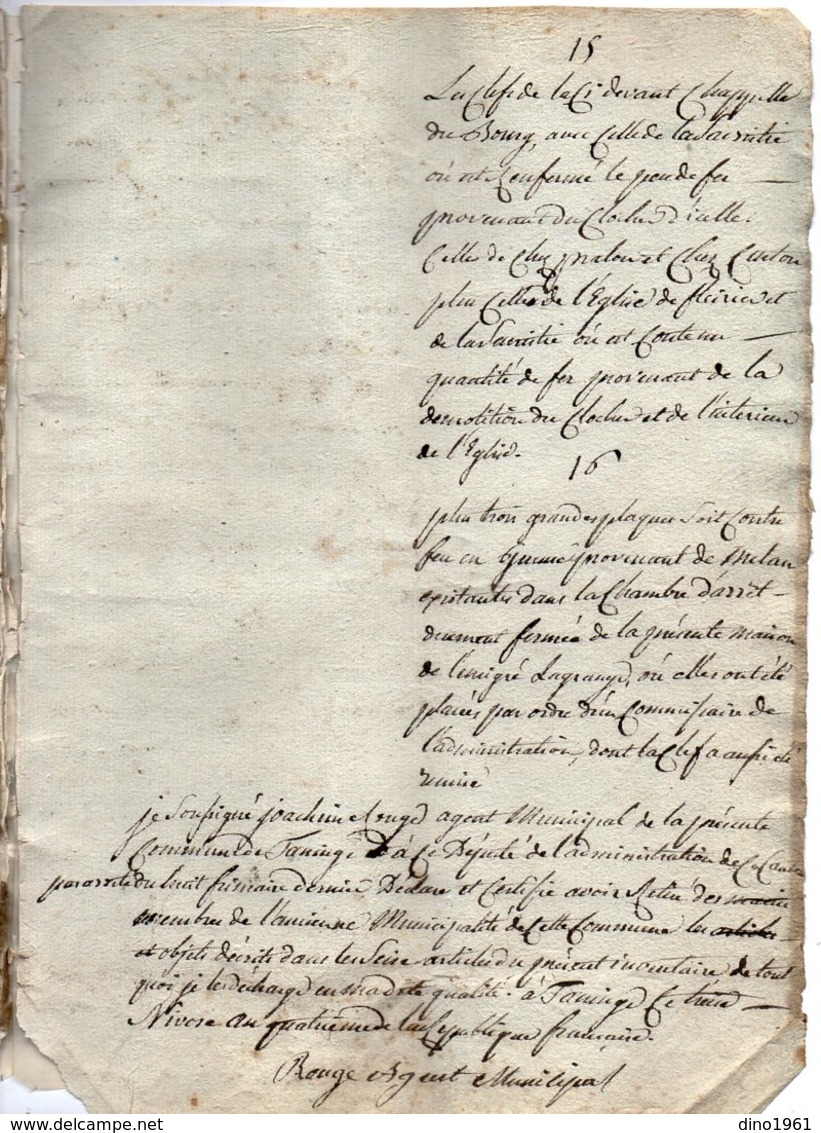 15
Les Clefs de la Ci devant Chappelle
du Bourg, avec Celle de la Sacristie
où est Renfermé le peu de fer
provenant du Clocher d'icelle.
Celle de Chez pralon et Chez Curton
plus Celles de l'Eglise de fleirier et
de la Sacristie où est Contenu
quantité de fer provenant de la
demolition du Clocher et de l'interieur
de l'Eglise.
16
plus trois grandes plaques soit Contre
feu en provenant de Melan
existantes dans la Chambre d'arrêt
duement fermée de la présente maison
de l'emigré Lagrange, où elles ont été
placés par ordre d'un Commissaire de
l'administration, dont la Clef a aussi été
remise
je Soussigné joachim Rouge agent Municipal de la présente
Commune de Taninge à Ce Député de l'administration de Ce Canton
par arrêté du huit frimaire dernier Déclare et Certifie avoir Retiré des
membres de l'ancienne Municipalité de Cette Commune les articles
et objets décrits dans les Seize articles du présent inventaire de tout
quoi je les décharge en madite qualité. à Taninge Ce treize
Nivose an quatrieme de la Republique française.
Rouge Agent Municipal
dino1961